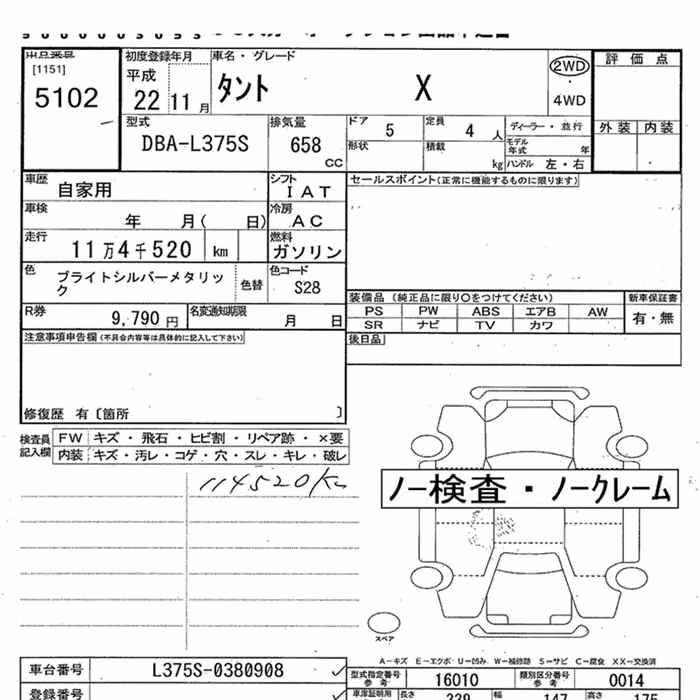 出品番号 初度登録年月 車名・グレード 評価点
[1151] 平成 タント X 2WD
5102 22 11月 ・ 4WD
型式 排気量 ドア 5 定員 4人 ディーラー・並行 外装 内装
DBA-L375S 658 CC 形状 積載 kg モデル年式 年
ハンドル 左・右
車歴 自家用 シフト IAT セールスポイント(正常に機能するものに限ります)
車検 年 月( 日) 冷房 AC
走行 11万4千520 km 燃料 ガソリン
色 ブライトシルバーメタリック 色替 色コード S28
装備品 (純正品に限り○をつけてください) 新車保証書
R券 9,790円 名変通知期限 月 日 PS PW ABS エアB AW 有・無
SR ナビ TV カワ
注意事項申告欄(不具合内容等は具体的に記入して下さい) 後日品
修復歴 有〔箇所 〕
検査員記入欄 FW キズ・飛石・ヒビ割・リペア跡・×要
内装 キズ・汚レ・コゲ・穴・スレ・キレ・破レ
114520Km
ノー検査・ノークレーム
スペア
A－キズ E－エクボ・U－凹み W－補修跡 S－サビ C－腐食 XX－交換済
車台番号 L375S-0380908 型式指定番号 参考 16010 類別区分番号 参考 0014
登録番号 車庫証明用 長さ 339 幅 147 高さ 175